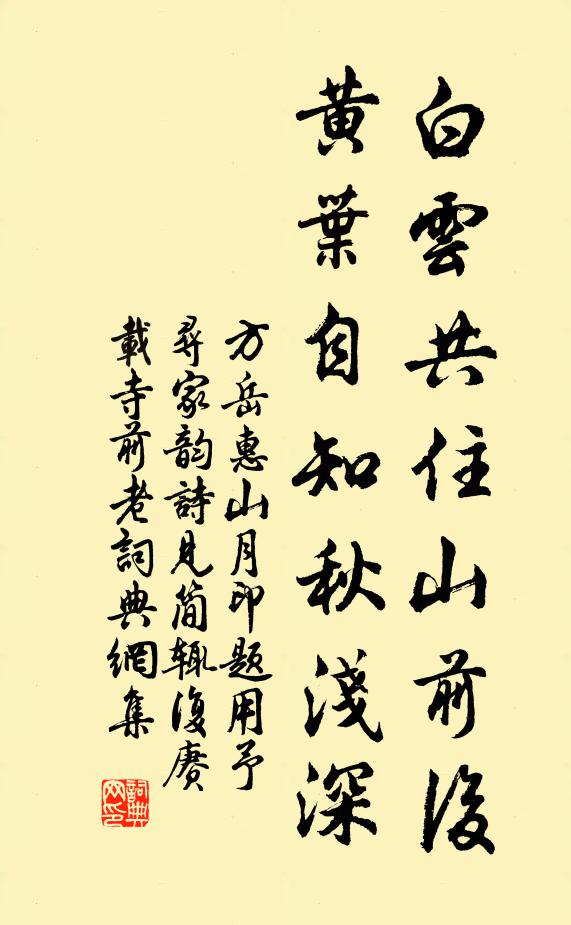 白雲共住山前後
黄葉自知秋淺深
方岳惠山月印題用予
尋家韵詩見简輒復赓
載寺前老詞典網集
詞典网印